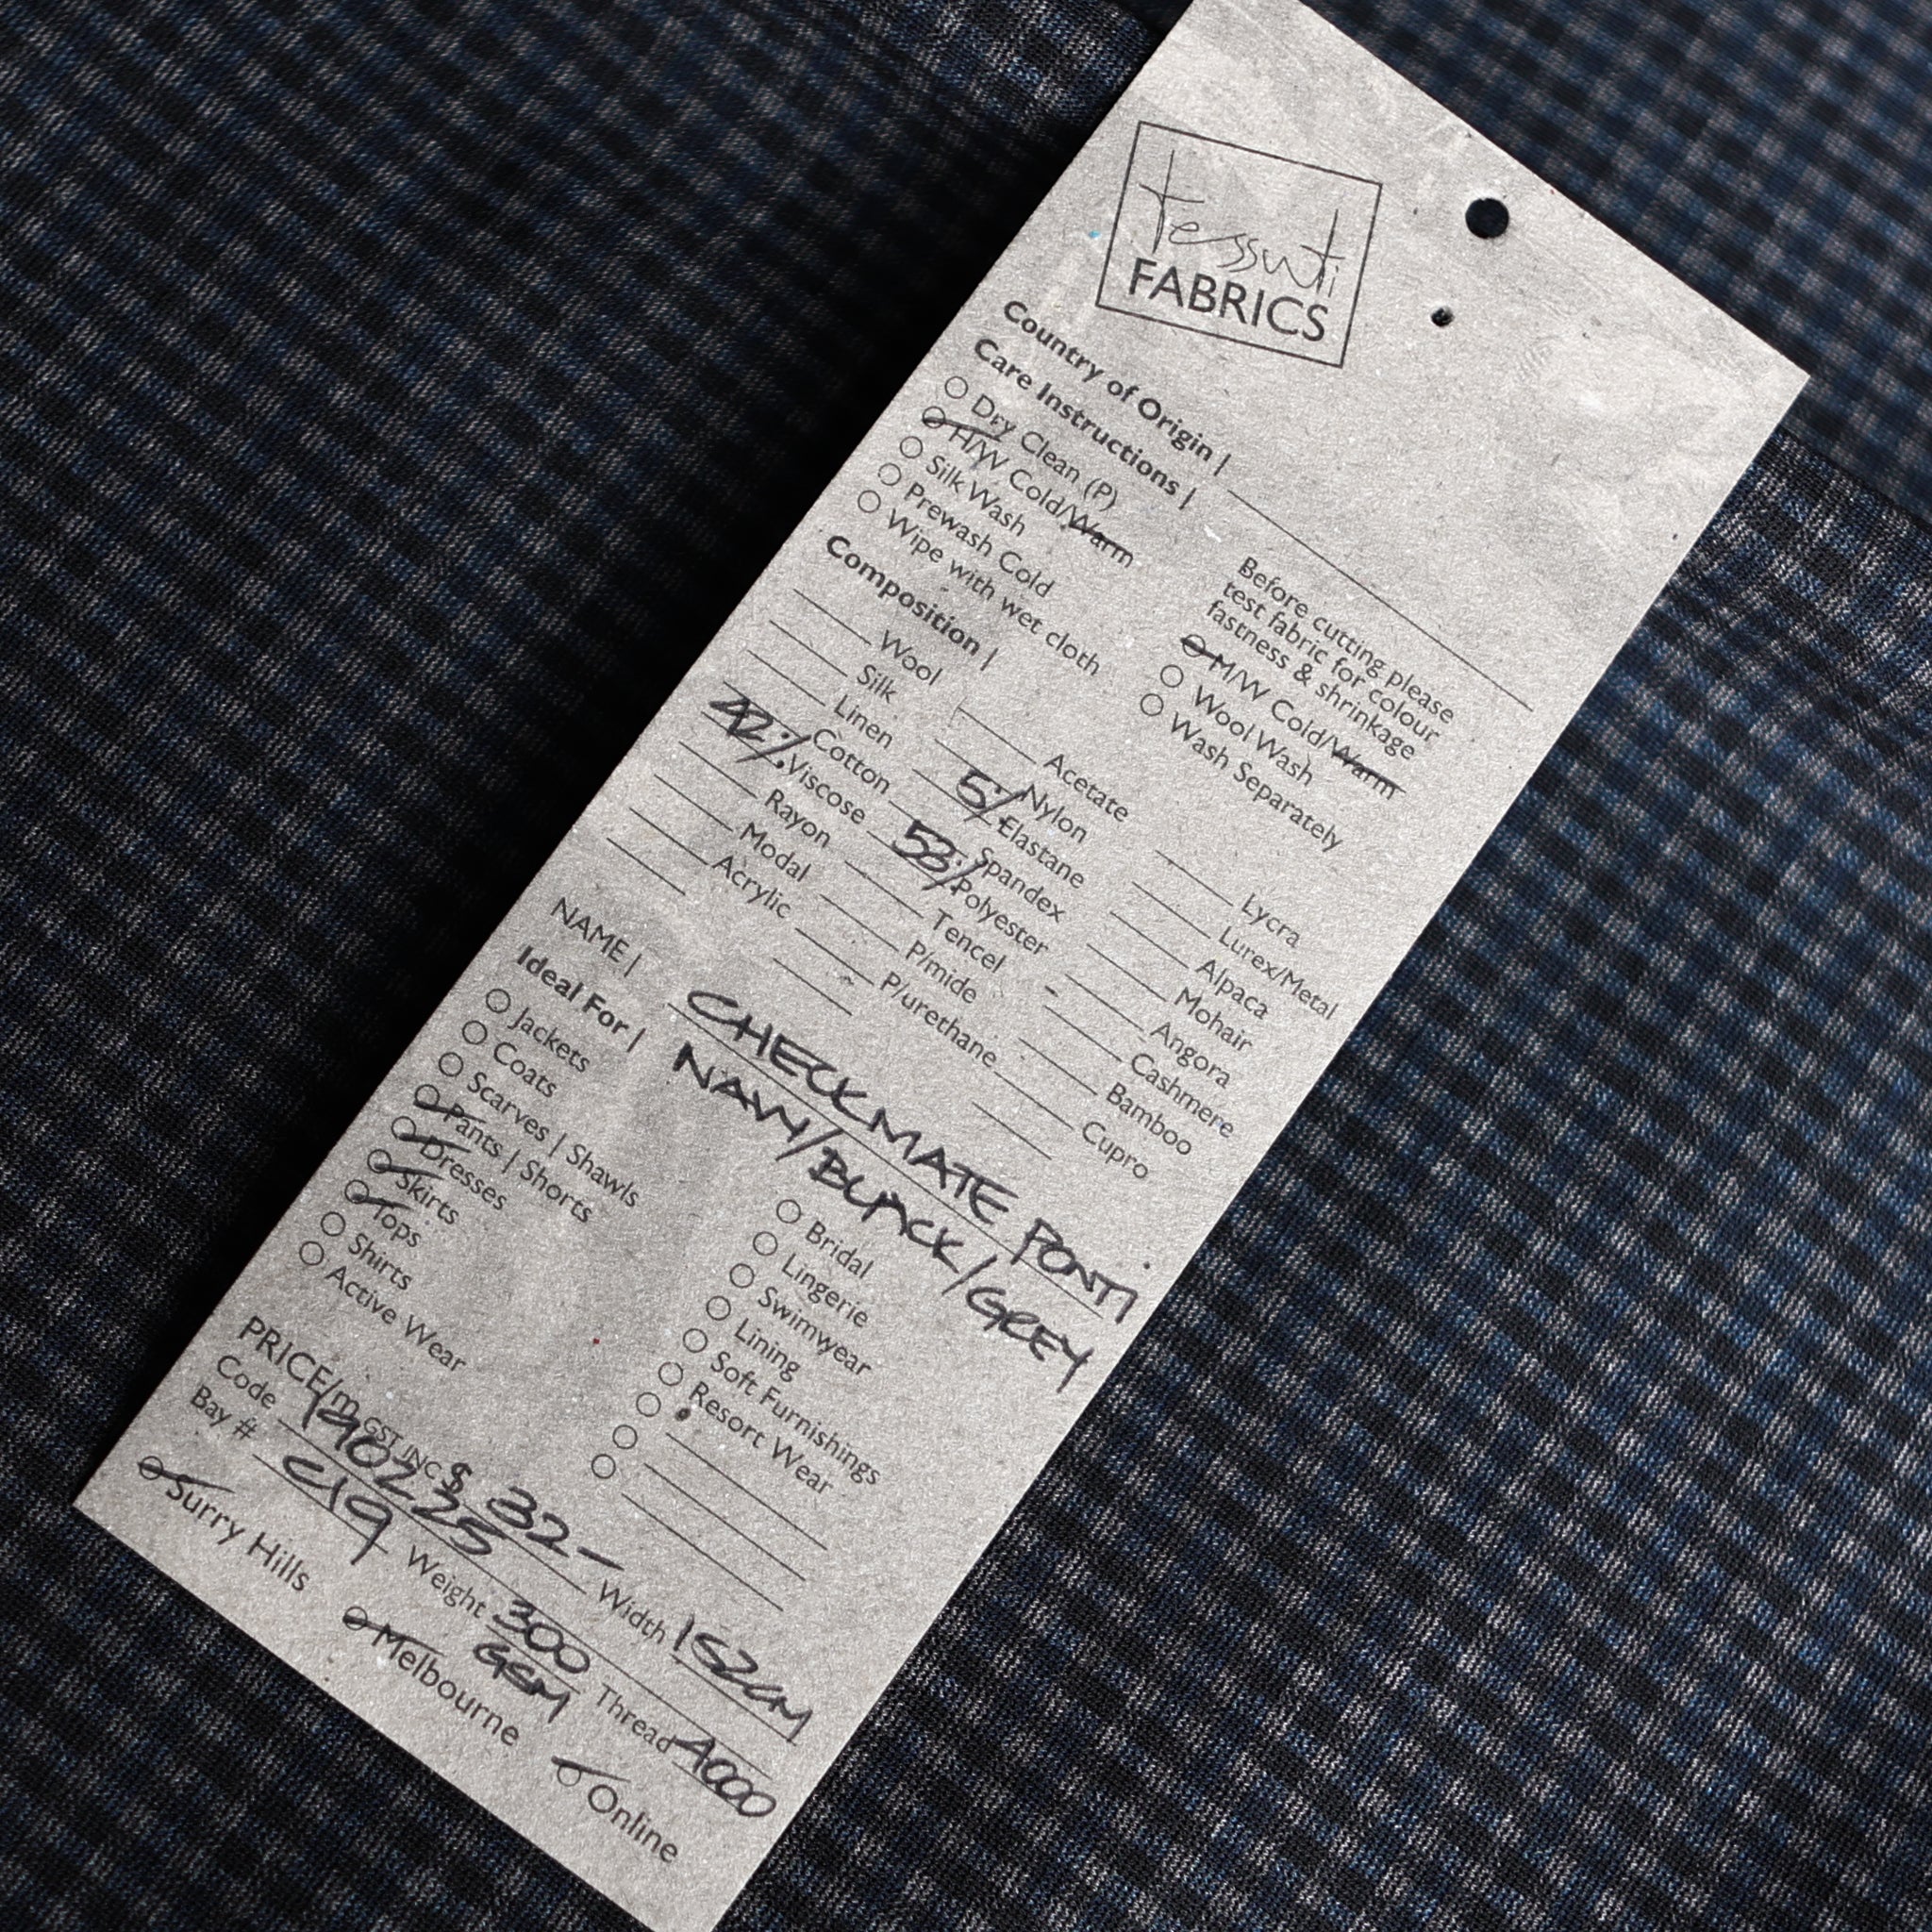 tessuti
FABRICS
Country of Origin |
Care Instructions |
Dry Clean (P)
H/W Cold/Warm
Silk Wash
Prewash Cold
Wipe with wet cloth
Before cutting please
test fabric for colour
fastness & shrinkage
M/W Cold/Warm
Wool Wash
Wash Separately
Composition |
Wool
Silk
Linen
Cotton
42% Viscose
Rayon
Modal
Acrylic
Acetate
Nylon
5% Elastane
Spandex
53% Polyester
Tencel
P/mide
P/urethane
Lycra
Lurex/Metal
Alpaca
Mohair
Angora
Cashmere
Bamboo
Cupro
NAME | CHECKMATE PONTI
NAVY/BLACK/GREY
Ideal For |
Jackets
Coats
Scarves | Shawls
Pants | Shorts
Dresses
Skirts
Tops
Shirts
Active Wear
Bridal
Lingerie
Swimwear
Lining
Soft Furnishings
Resort Wear
PRICE/m GST INC $ 32-
Code 1902225 Width 152CM
Bay # C19 Weight 300 GSM Thread A000
Surry Hills Melbourne Online